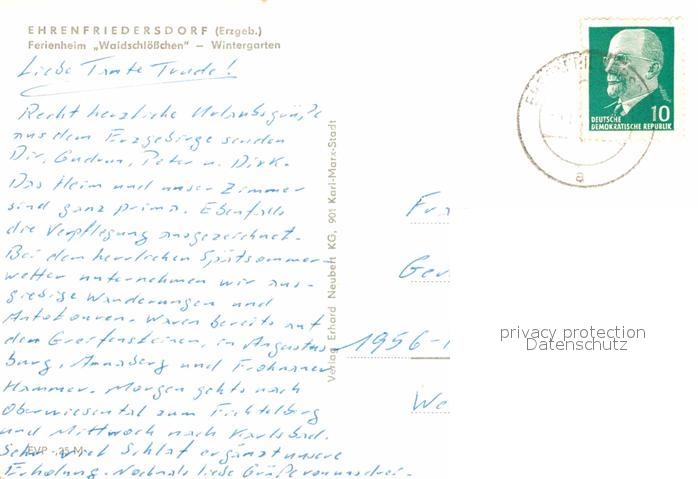 EHRENFRIEDERSDORF (Erzgeb.)
Ferienheim „Waldschlößchen" – Wintergarten
Liebe Tante Trude!
Recht herzliche Urlaubsgrüße
aus dem Erzgebirge senden
Dir, Gudrun, Peter u. Dirk.
Das Heim und unser Zimmer
sind ganz prima. Ebenfalls
die Verpflegung ausgezeichnet.
Bei dem herrlichen Spätsommer-
wetter unternehmen wir aus-
giebige Wanderungen und
Autotouren. Waren bereits auf
den Greifensteinen, in Augustus-
burg, Annaberg und Frohnauer
Hammer. Morgen gehts nach
Oberwiesental zum Fichtelberg
und Mittwoch nach Karlsbad.
Sehr viel Schlaf ergänzt unsere
Erholung. Nochmals liebe Grüße von uns drei.
EVP -,25 M
Verlag Erhard Neubert KG, 901 Karl-Marx-Stadt
DEUTSCHE
DEMOKRATISCHE REPUBLIK
10
a
Fra
Ger
1956-1
We
privacy protection
Datenschutz